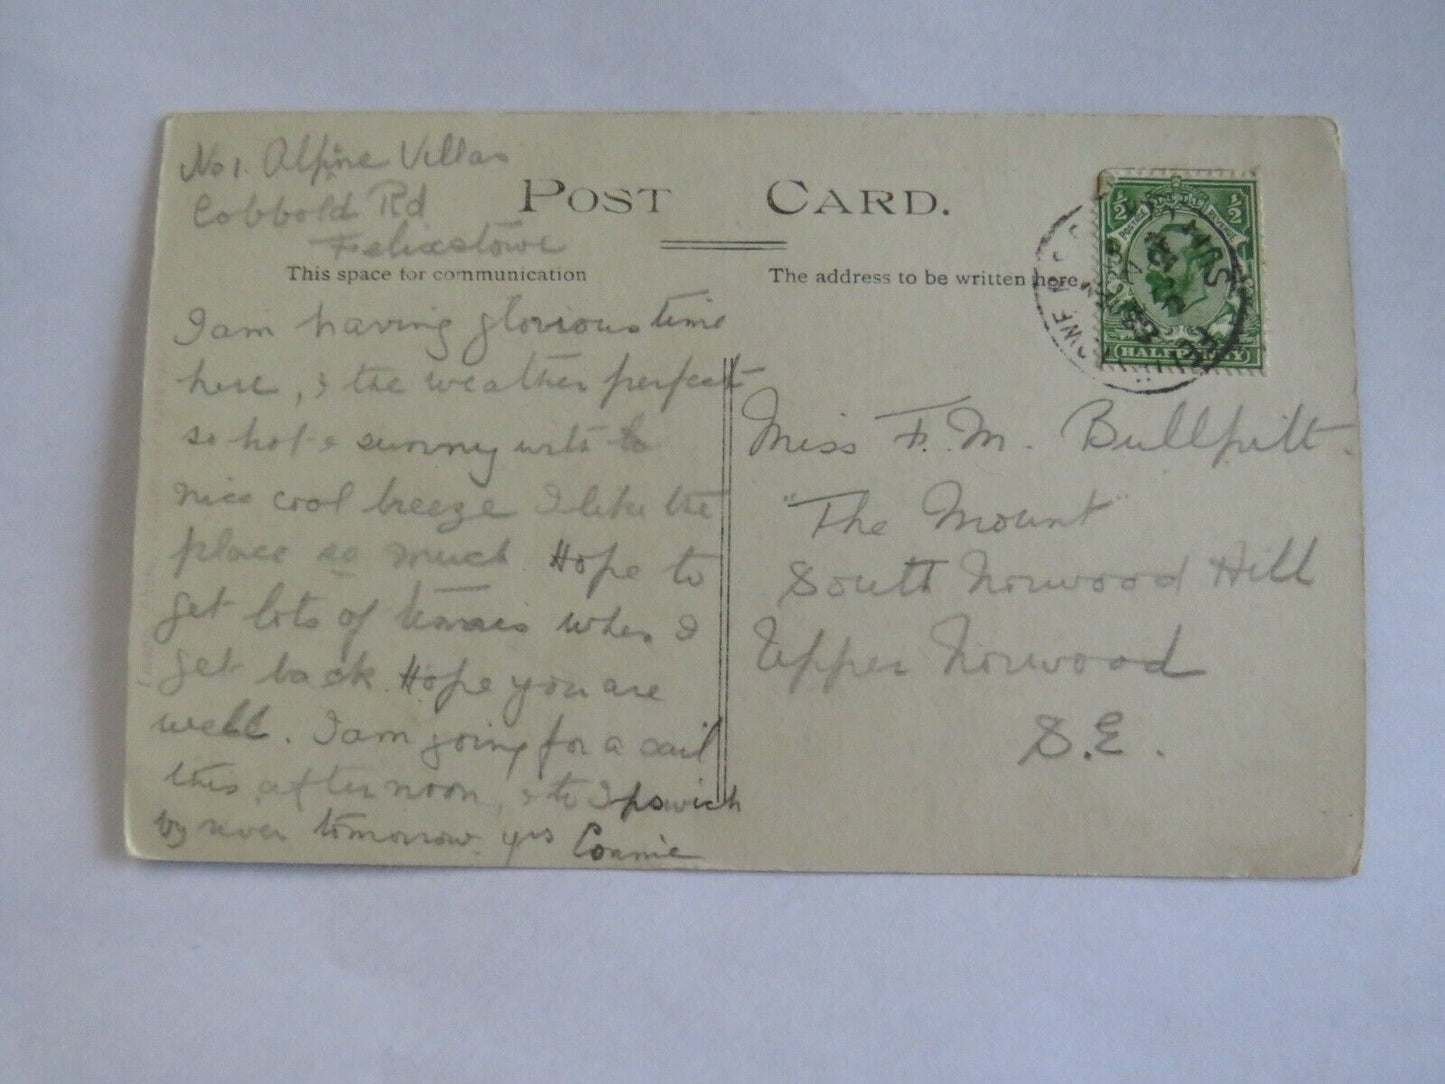 No 1. Alpine Villas
Cobbold Rd
Felixstowe
POST CARD.
This space for communication
The address to be written here
I am having glorious time
here, & the weather perfect
so hot & sunny with
nice cool breeze I like the
place so much Hope to
get lots of tennis when I
get back. Hope you are
well. I am going for a sail
this afternoon, & to Ipswich
by river tomorrow. yrs Connie
½ ½
POSTAGE REVENUE
HALFPENNY
Miss F. M. Bullpitt.
"The Mount"
South Norwood Hill
Upper Norwood
S.E.